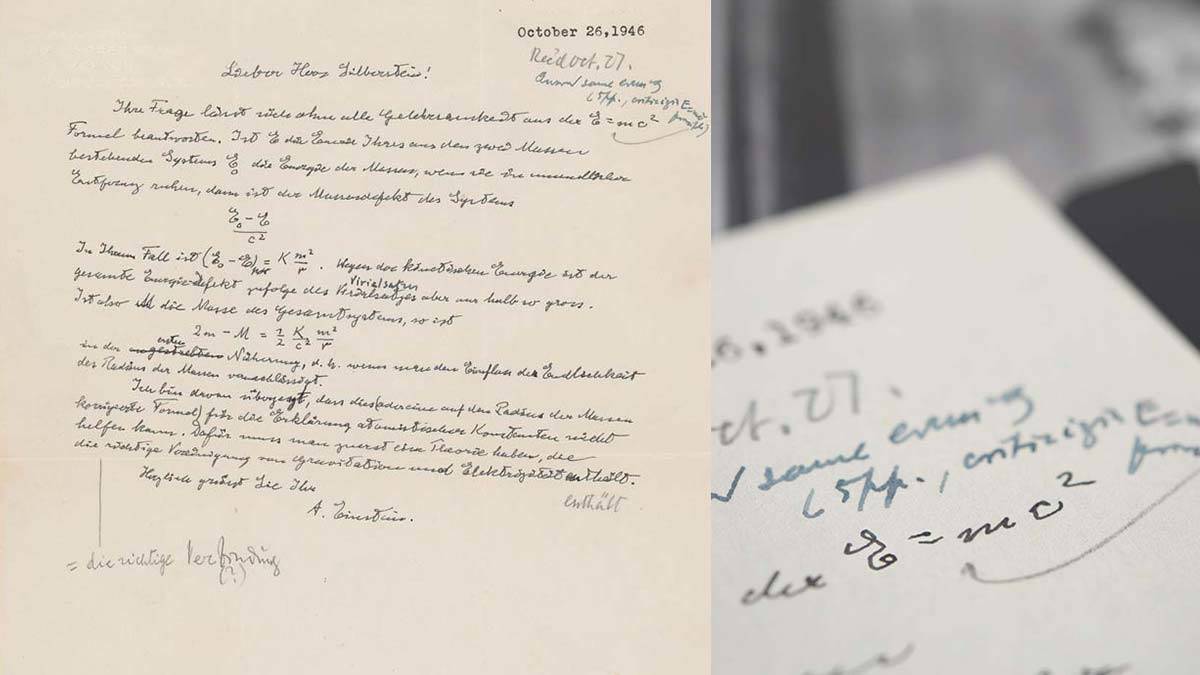 October 26,1946
Rec'd Oct. 27.
Answ'd same evening
(5pp., criticizing E=mc²
formula)
Lieber Herr Silberstein!
Ihre Frage lässt sich ohne alle Gelehrsamkeit aus der E = mc²
Formel beantworten. Ist E die Energie Ihres aus den zwei Massen
bestehenden Systems E₀ die Energie der Massen, wenn sie in unendlicher
Entfernung ruhen, dann ist der Massendefekt des Systems
E₀ - E
c²
In Ihrem Fall ist (E₀ - E) = K m²/r . Wegen der kinetischen Energie ist der
Virialsatzes
gesamte Energie-Defekt zufolge des Virialsatzes aber nur halb so gross.
Ist also M die Masse des Gesamtsystems, so ist
2m - M = 1/2 K/c² m²/r
ersten
in der Näherung, d. h. wenn man den Einfluss der Endlichkeit
des Radius der Massen vernachlässigt.
Ich bin davon überzeugt, dass dies (oder eine auf den Radius der Massen
korrigierte Formel) für die Erklärung atomistischer Konstanten nicht
helfen kann. Dafür muss man zuerst eine Theorie haben, die
die richtige Vereinigung von Gravitation und Elektrizität enthält.
enthält
Herzlich grüsst Sie Ihr
A. Einstein.
= die richtige Verbindung
(?)
6,1946
ct. 27.
same evening
(5pp., criticizing E=m
der E = mc²